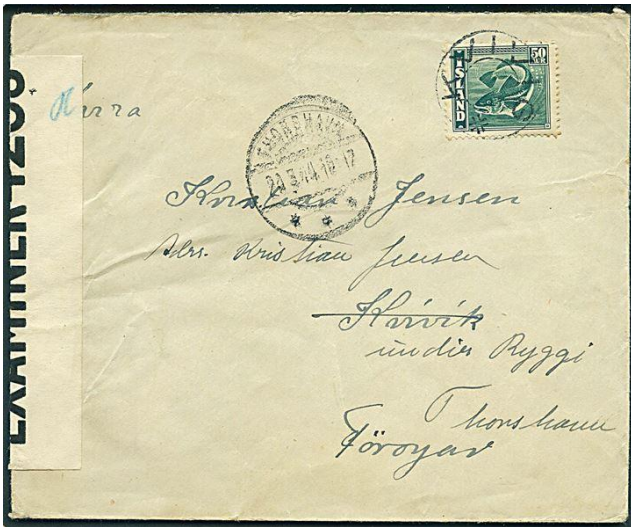 EXAMINER 4205
Harra
THORSHAVN
20.3.44.16-17
50
AUR
ISLAND
Kristian Jensen
Adrs. Kristian Jensen
Kvívík
undir Ryggi
Thorshavn
Föroyar